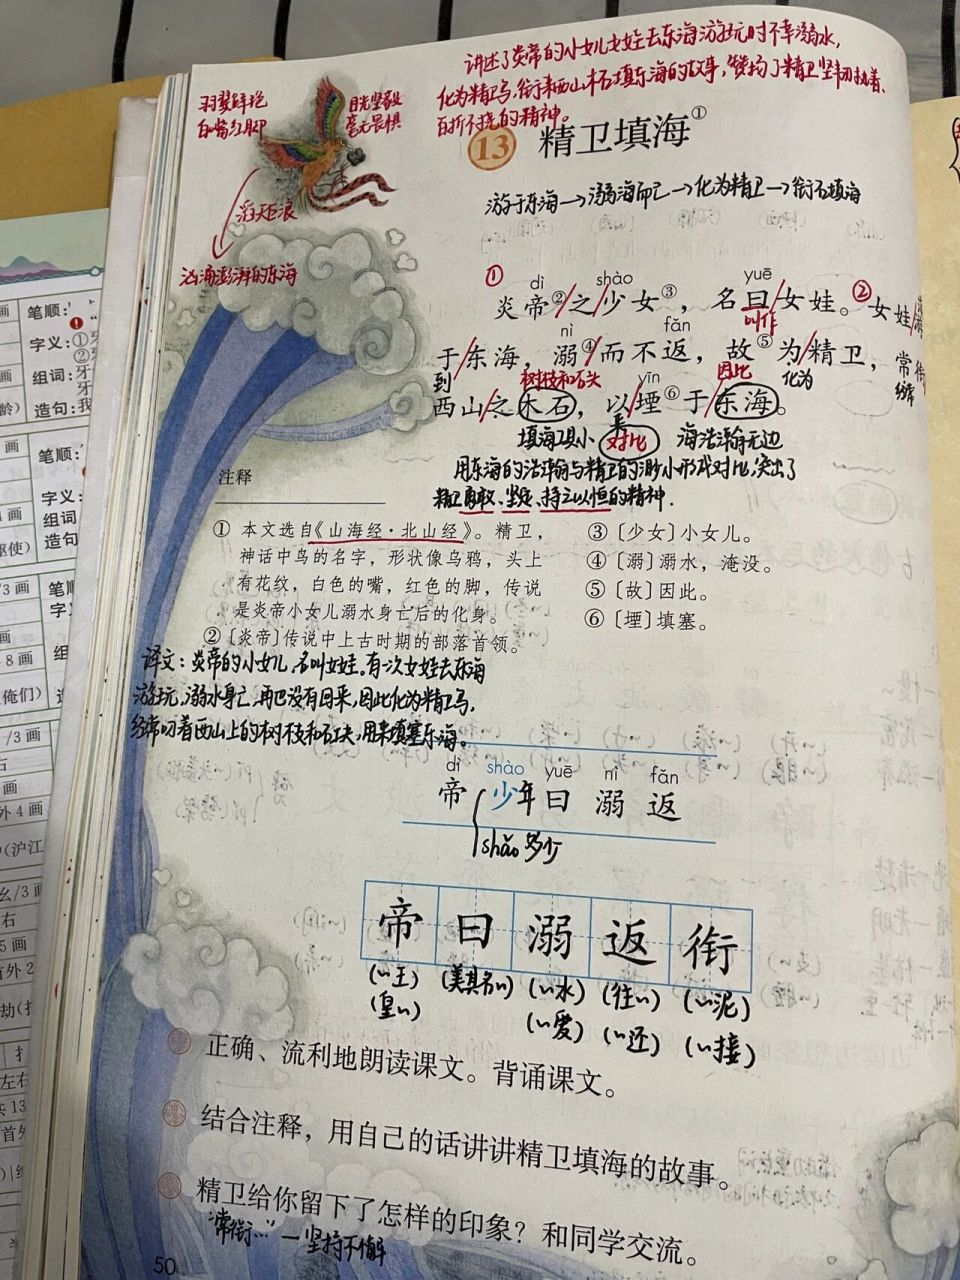 讲述了炎帝的小女儿女娃去东海游玩时不幸溺水,
化为精卫鸟,衔来西山木石填东海的故事,赞扬了精卫坚韧执着、
百折不挠的精神。
羽翼鲜艳
白嘴红脚
目光坚毅
毫无畏惧
滔天巨浪
汹涌澎湃的东海
13 精卫填海①
游于东海→溺海而亡→化为精卫→衔石填海
① dì shào yuē ②
炎帝②/之/少女③,名曰/女娃。女娃/游
叫作
nì fǎn
于/东海,溺④/而不返,故⑤为/精卫,常衔
到 树枝和石头 因此 化为 经常
yīn
西山/之木石,以/堙⑥于/东海。
来
填海工具小 对比 海浩瀚无边
用东海的浩瀚与精卫的渺小形成对比,突出了
精卫勇敢、坚定、持之以恒的精神.
注释
① 本文选自《山海经·北山经》。精卫,
神话中鸟的名字,形状像乌鸦,头上
有花纹,白色的嘴,红色的脚,传说
是炎帝小女儿溺水身亡后的化身。
② 〔炎帝〕传说中上古时期的部落首领。
③ 〔少女〕小女儿。
④ 〔溺〕溺水,淹没。
⑤ 〔故〕因此。
⑥ 〔堙〕填塞。
译文:炎帝的小女儿,名叫女娃。有一次女娃去东海
游玩,溺水身亡,再也没有回来,因此化为精卫鸟,
经常叼着西山上的树枝和石头,用来填塞东海。
dì shào yuē nì fǎn
帝 少年 曰 溺 返
shǎo 多少
帝 曰 溺 返 衔
(〃王) (美其名〃) (〃水) (往〃) (〃泥)
(皇〃) (〃爱) (〃还) (〃接)
正确、流利地朗读课文。背诵课文。
结合注释,用自己的话讲讲精卫填海的故事。
精卫给你留下了怎样的印象?和同学交流。
“常衔…”—坚持不懈
50
笔顺:
字义:①
②
组词:牙
牙
造句:我
笔顺:
字义:
组词
造句